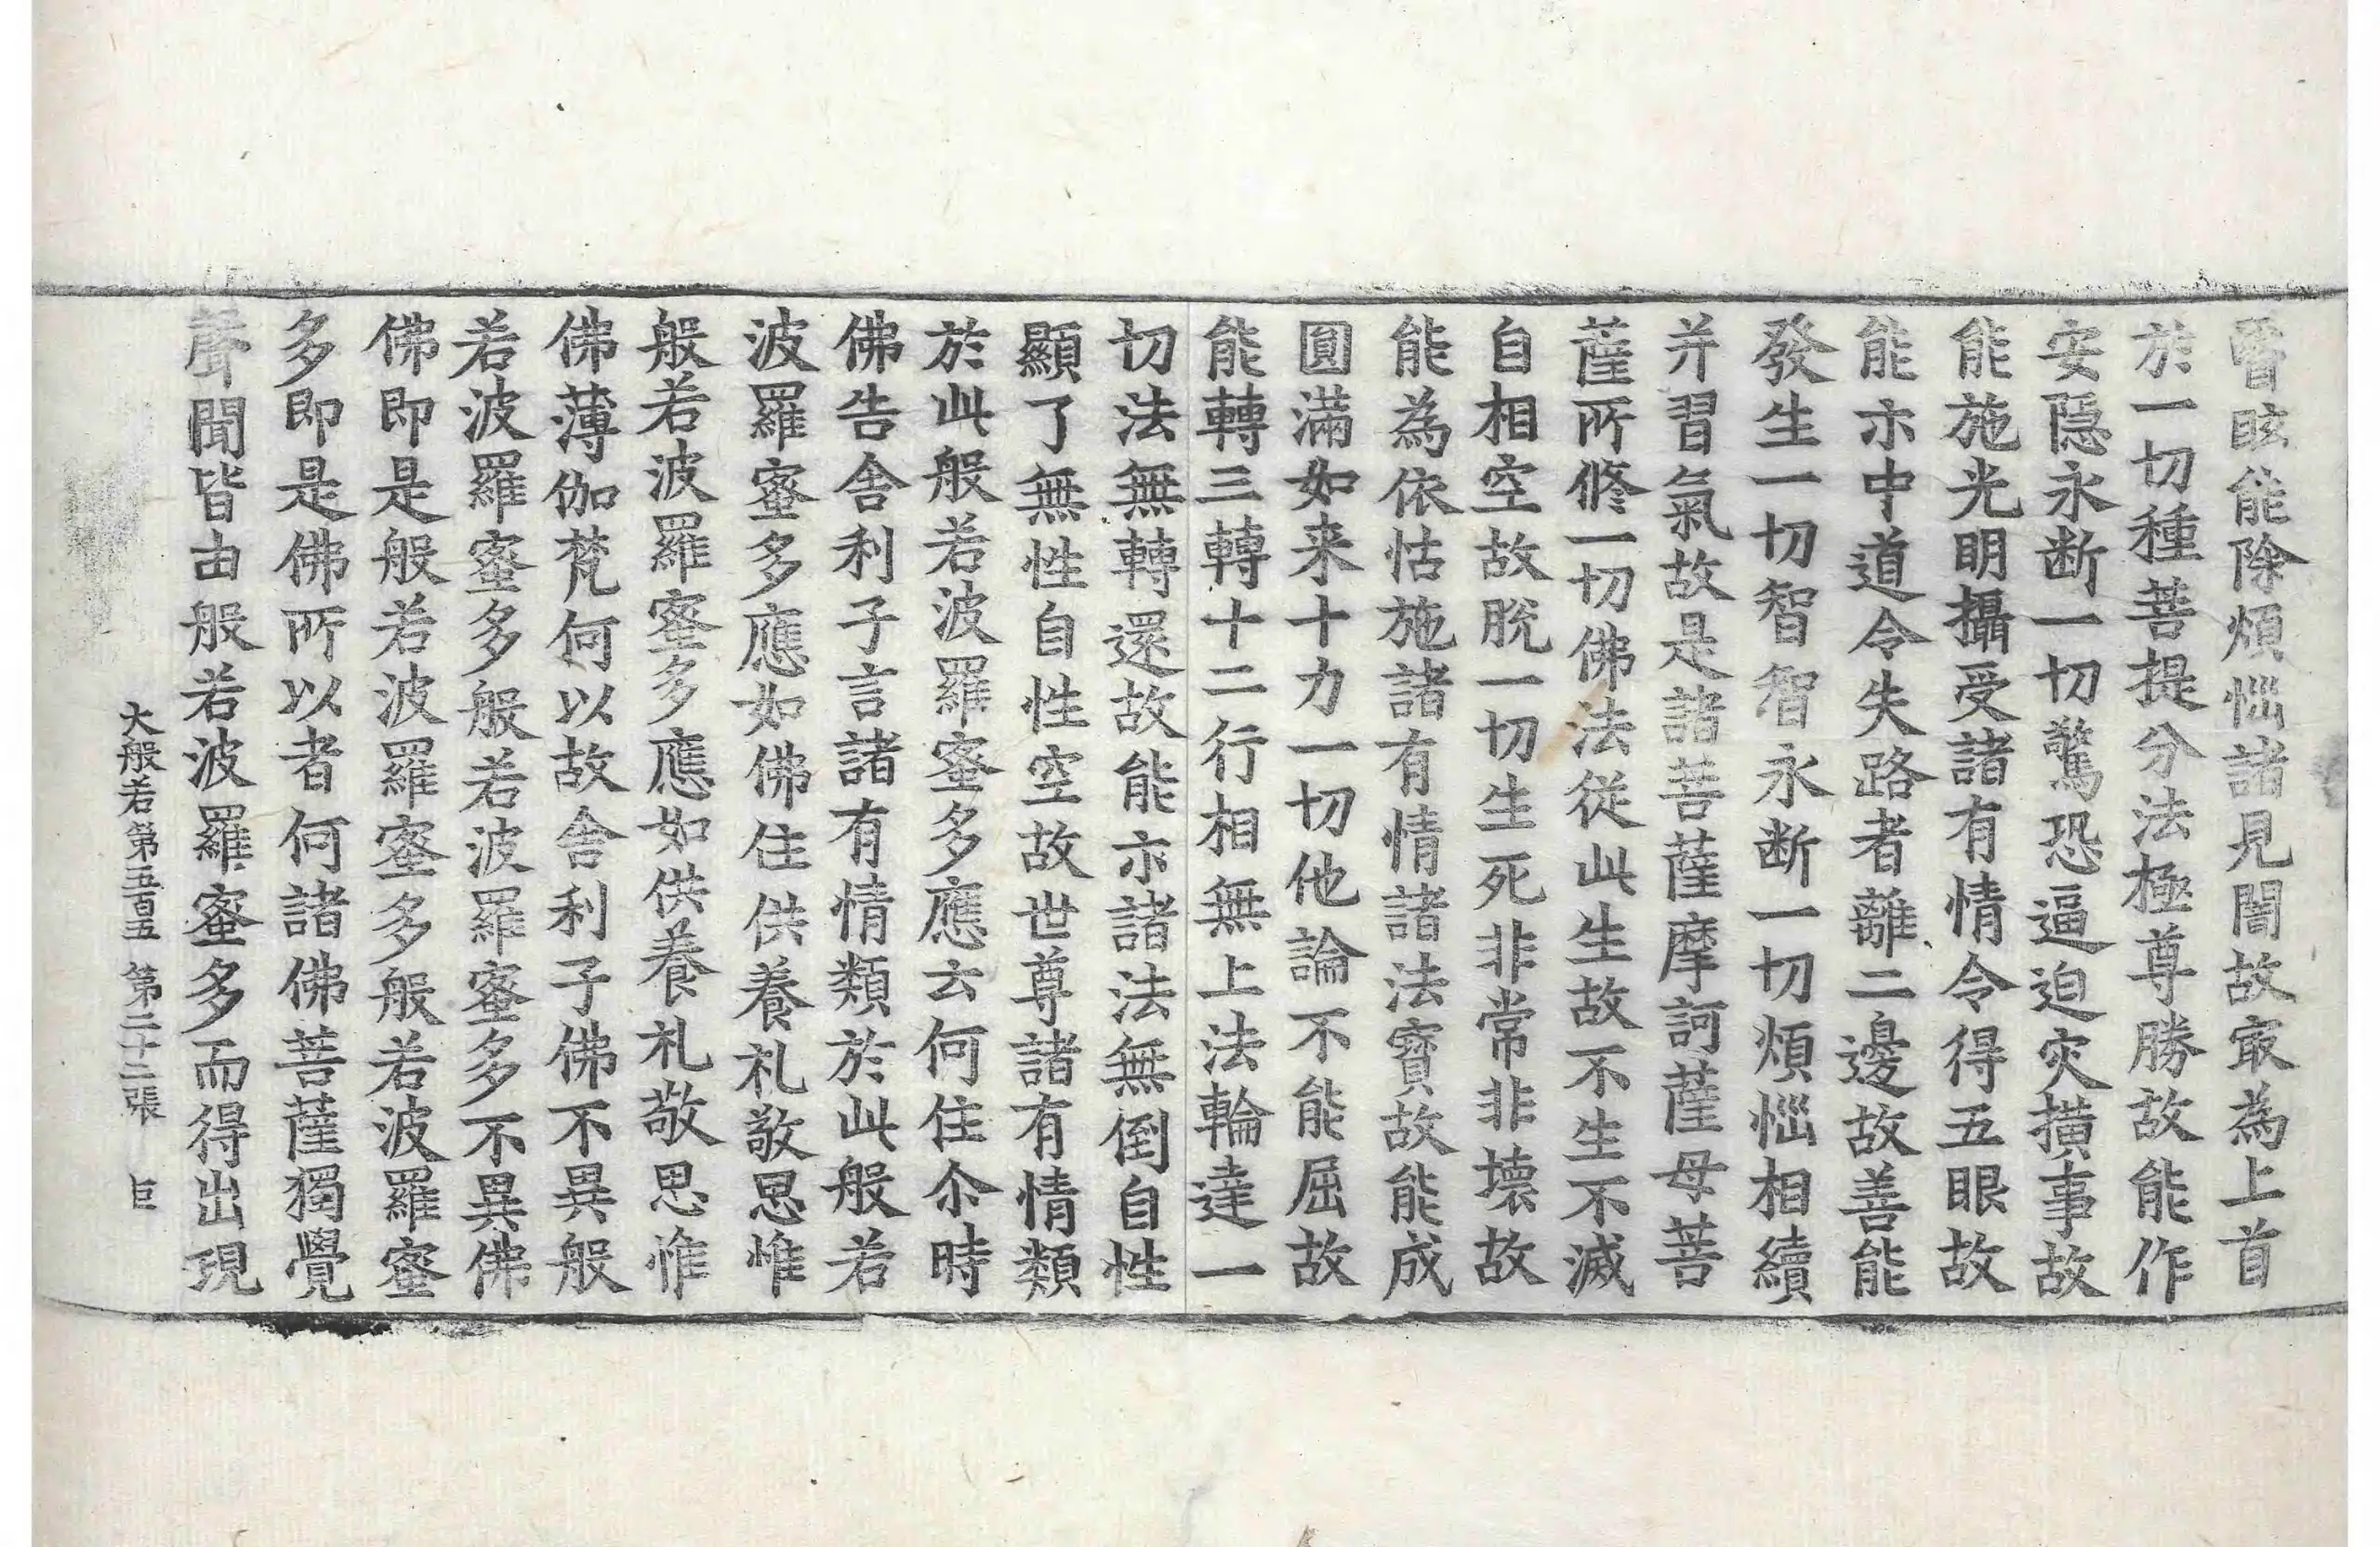 瞖眩能除煩惱諸見闇故㝡為上首
於一切種菩提分法極尊勝故能作
安隱永断一切驚恐逼迫灾横事故
能施光明攝受諸有情令得五眼故
能示中道令失路者離二邊故善能
發生一切智智永断一切煩惱相續
并習氣故是諸菩薩摩訶薩母菩
薩所修一切佛法從此生故不生不滅
自相空故脫一切生死非常非壞故
能為依怙施諸有情諸法寶故能成
圓滿如来十力一切他論不能屈故
能轉三轉十二行相無上法輪達一
切法無轉還故能示諸法無倒自性
顯了無性自性空故世尊諸有情類
於此般若波羅蜜多應云何住尒時
佛告舍利子言諸有情類於此般若
波羅蜜多應如佛住供養礼敬思惟
般若波羅蜜多應如供養礼敬思惟
佛薄伽梵何以故舍利子佛不異般
若波羅蜜多般若波羅蜜多不異佛
佛即是般若波羅蜜多般若波羅蜜
多即是佛所以者何諸佛菩薩獨覺
聲聞皆由般若波羅蜜多而得出現
大般若第五百五 第二十二張 巨